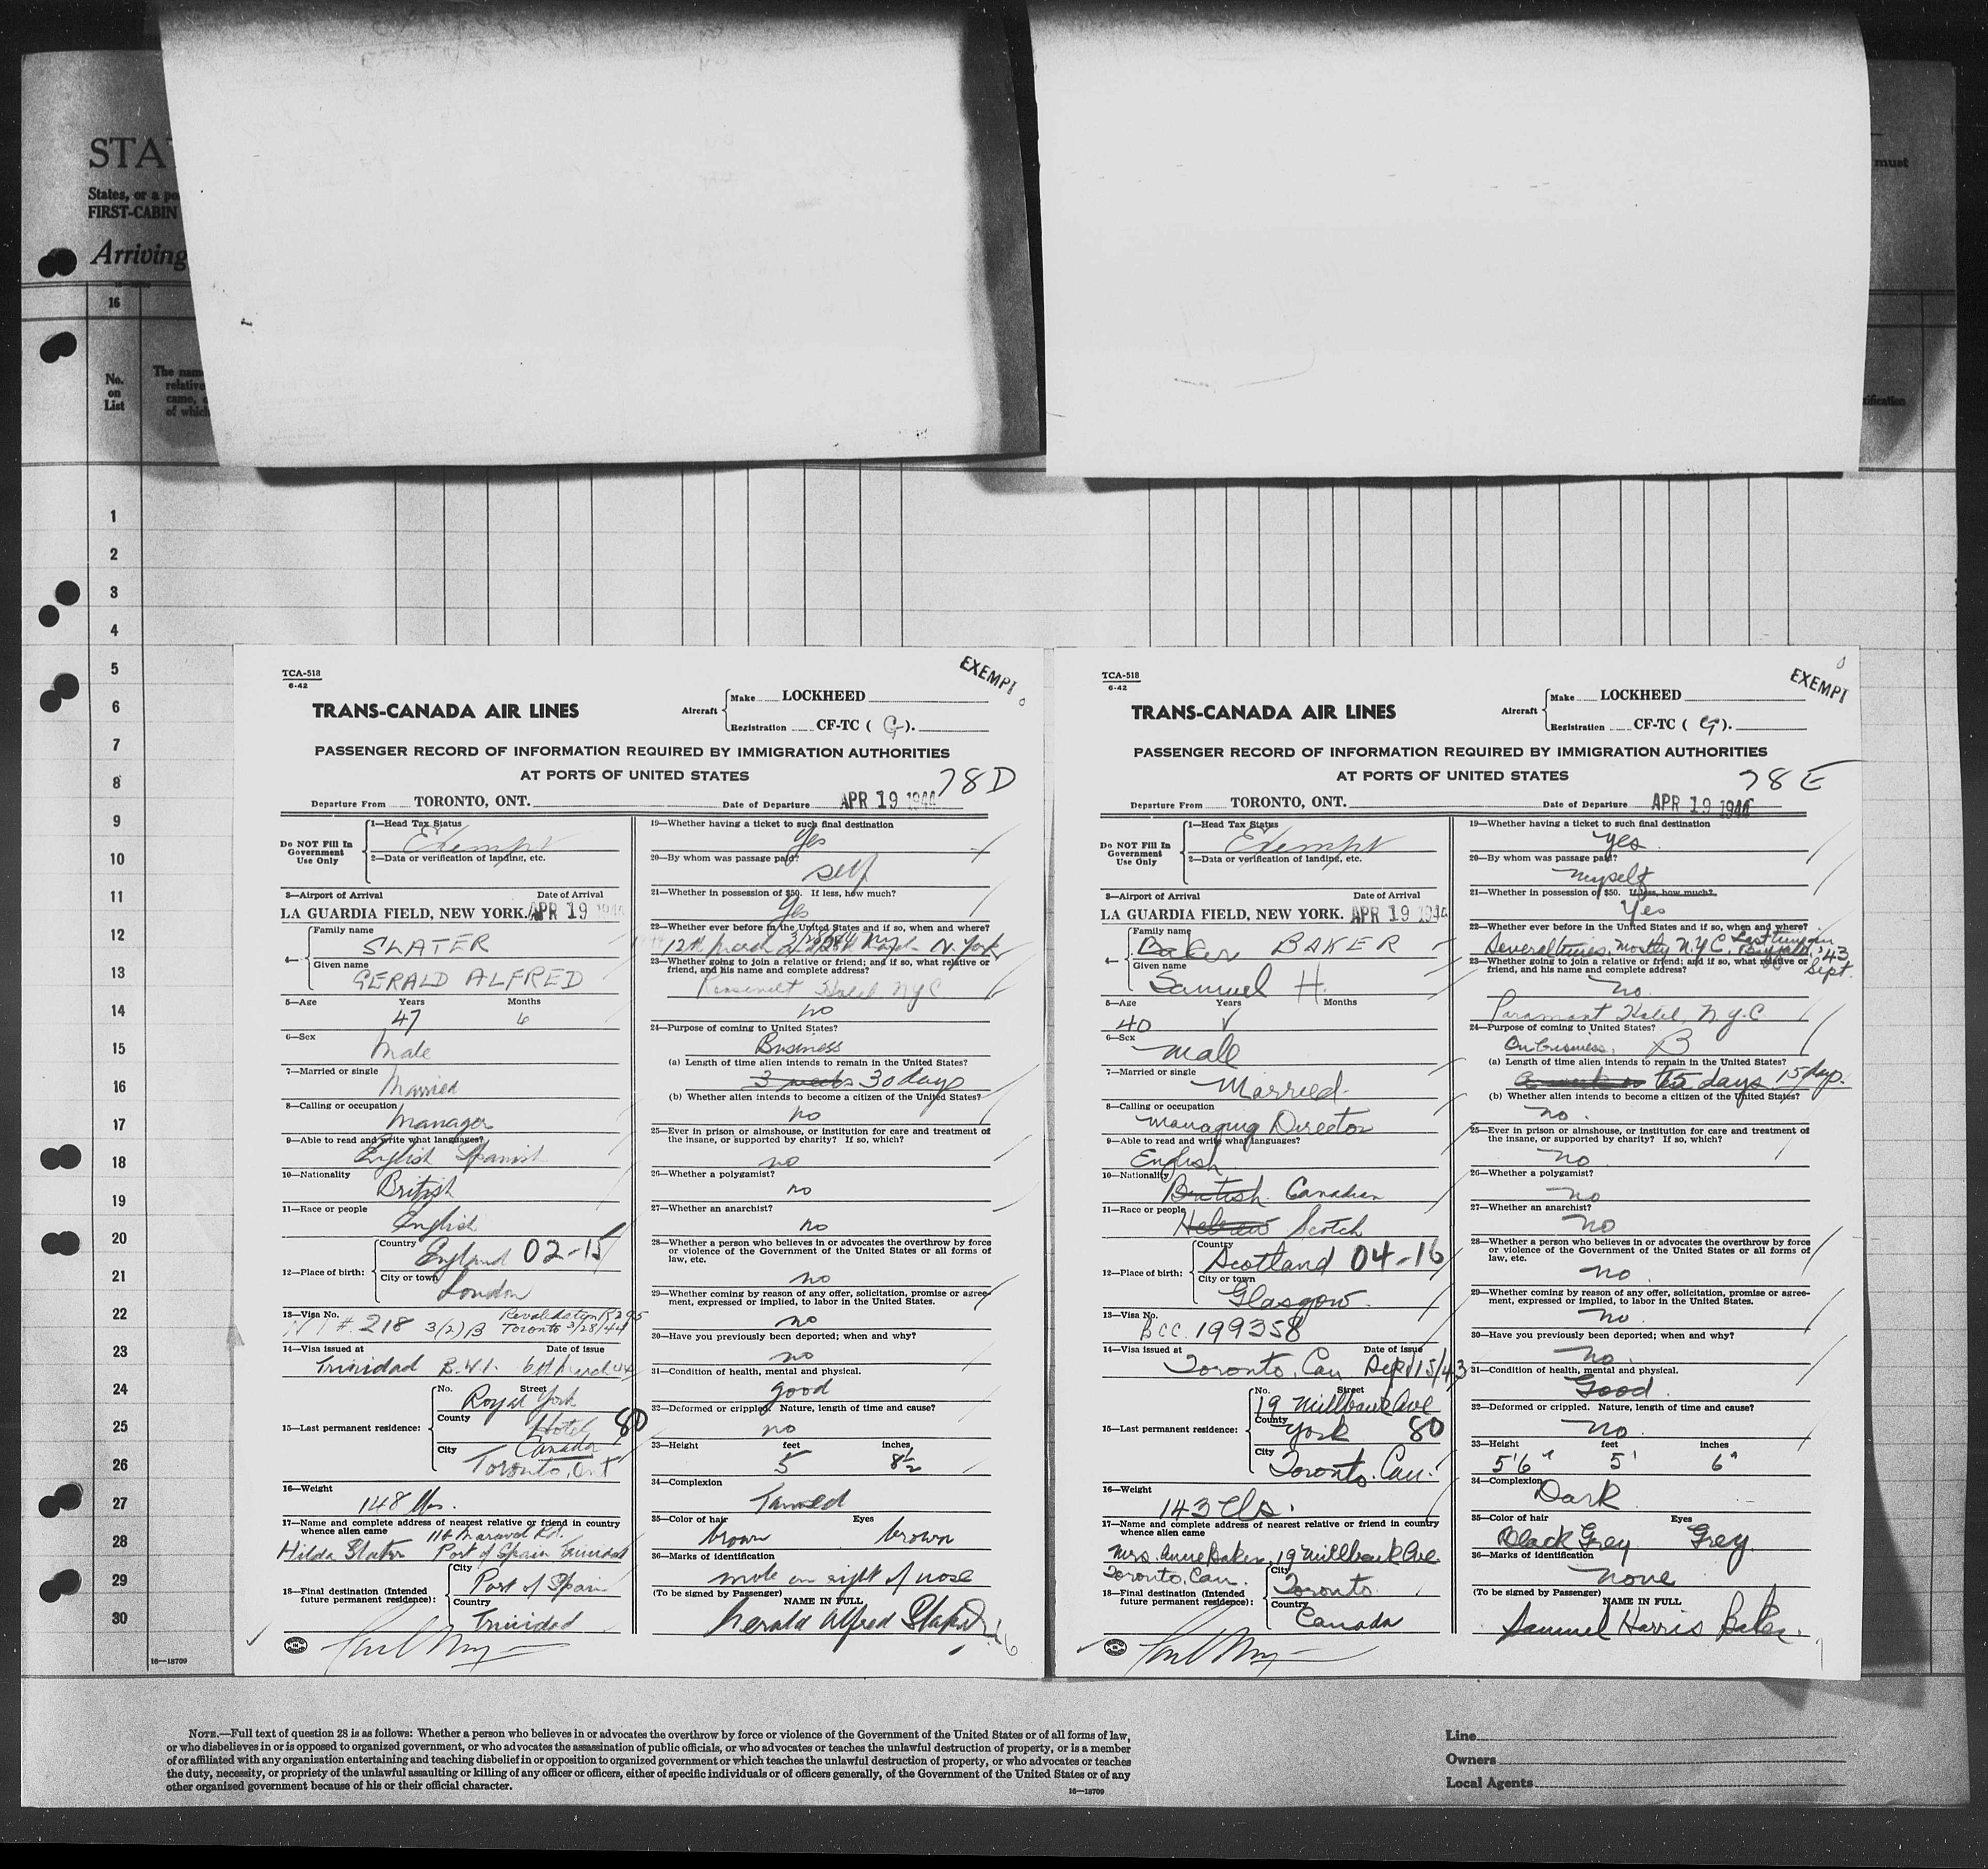 STA
States, or a po
FIRST-CABIN
Arriving
must
16
No.
on
List
The nam
relative
came,
of which
1
2
3
4
5
6
7
8
9
10
11
12
13
14
15
16
17
18
19
20
21
22
23
24
25
26
27
28
29
30
16—18709
TCA-518
6-42
EXEMPT
TRANS-CANADA AIR LINES
Aircraft
Make LOCKHEED
Registration CF-TC ( G ).
PASSENGER RECORD OF INFORMATION REQUIRED BY IMMIGRATION AUTHORITIES
AT PORTS OF UNITED STATES
78D
Departure From TORONTO, ONT.
Date of Departure APR 19 1944
Do NOT Fill In
Government
Use Only
1—Head Tax Status
Exempt
2—Data or verification of landing, etc.
3—Airport of Arrival Date of Arrival
LA GUARDIA FIELD, NEW YORK. APR 19 1944
4—
Family name
SLATER
Given name
GERALD ALFRED
5—Age Years Months
47 6
6—Sex
Male
7—Married or single
Married
8—Calling or occupation
Manager
9—Able to read and write what languages?
English Spanish
10—Nationality
British
11—Race or people
English
12—Place of birth:
Country
England 02-15
City or town
London
13—Visa No.
# 218 3(2)B
Toronto 3/28/44
14—Visa issued at Date of issue
Trinidad B.W.I. 6th March 44
15—Last permanent residence:
No. Street
Royal York
County
Hotel 80
City
Canada
Toronto, Ont
16—Weight
148 lbs.
17—Name and complete address of nearest relative or friend in country
whence alien came
116 Maraval Rd.
Hilda Slater Port of Spain Trinidad
18—Final destination (Intended
future permanent residence):
City
Port of Spain
Country
Trinidad
19—Whether having a ticket to such final destination
Yes
20—By whom was passage paid?
self
21—Whether in possession of $50. If less, how much?
Yes
22—Whether ever before in the United States and if so, when and where?
12th March N. York
23—Whether going to join a relative or friend; and if so, what relative or
friend, and his name and complete address?
Roosevelt Hotel NYC
no
24—Purpose of coming to United States?
Business
(a) Length of time alien intends to remain in the United States?
3 weeks 30 days
(b) Whether alien intends to become a citizen of the United States?
no
25—Ever in prison or almshouse, or institution for care and treatment of
the insane, or supported by charity? If so, which?
no
26—Whether a polygamist?
no
27—Whether an anarchist?
no
28—Whether a person who believes in or advocates the overthrow by force
or violence of the Government of the United States or all forms of
law, etc.
no
29—Whether coming by reason of any offer, solicitation, promise or agree-
ment, expressed or implied, to labor in the United States.
no
30—Have you previously been deported; when and why?
no
31—Condition of health, mental and physical.
good
32—Deformed or crippled. Nature, length of time and cause?
no
33—Height feet inches
5 8½
34—Complexion
Tanned
35—Color of hair Eyes
brown brown
36—Marks of identification
mole on right of nose
(To be signed by Passenger) NAME IN FULL
Gerald Alfred Slater
TCA-518
6-42
EXEMPT
TRANS-CANADA AIR LINES
Aircraft
Make LOCKHEED
Registration CF-TC ( G ).
PASSENGER RECORD OF INFORMATION REQUIRED BY IMMIGRATION AUTHORITIES
AT PORTS OF UNITED STATES
78E
Departure From TORONTO, ONT.
Date of Departure APR 19 1944
Do NOT Fill In
Government
Use Only
1—Head Tax Status
Exempt
2—Data or verification of landing, etc.
3—Airport of Arrival Date of Arrival
LA GUARDIA FIELD, NEW YORK. APR 19 1944
4—
Family name
Baker BAKER
Given name
Samuel H.
5—Age Years Months
40
6—Sex
male
7—Married or single
Married
8—Calling or occupation
Managing Director
9—Able to read and write what languages?
English
10—Nationality
British Canadian
11—Race or people
Hebrew Scotch
12—Place of birth:
Country
Scotland 04-16
City or town
Glasgow
13—Visa No.
BCC 199358
14—Visa issued at Date of issue
Toronto, Can Sept 15/43
15—Last permanent residence:
No. Street
19 Millbank Ave
County
York 80
City
Toronto. Can.
16—Weight
143 lbs.
17—Name and complete address of nearest relative or friend in country
whence alien came
Mrs. Anne Baker, 19 Millbank Ave.
Toronto, Can.
18—Final destination (Intended
future permanent residence):
City
Toronto.
Country
Canada
19—Whether having a ticket to such final destination
yes
20—By whom was passage paid?
Myself
21—Whether in possession of $50. If less, how much?
Yes
22—Whether ever before in the United States and if so, when and where?
Several times. Mostly N.Y.C. Last time in Buffalo, Sept. '43
23—Whether going to join a relative or friend; and if so, what relative or
friend, and his name and complete address?
no.
Paramont Hotel, N.Y.C
24—Purpose of coming to United States?
On business. B
(a) Length of time alien intends to remain in the United States?
days 15 days.
(b) Whether alien intends to become a citizen of the United States?
no.
25—Ever in prison or almshouse, or institution for care and treatment of
the insane, or supported by charity? If so, which?
no
26—Whether a polygamist?
no
27—Whether an anarchist?
no
28—Whether a person who believes in or advocates the overthrow by force
or violence of the Government of the United States or all forms of
law, etc.
no.
29—Whether coming by reason of any offer, solicitation, promise or agree-
ment, expressed or implied, to labor in the United States.
no.
30—Have you previously been deported; when and why?
no.
31—Condition of health, mental and physical.
Good.
32—Deformed or crippled. Nature, length of time and cause?
no.
33—Height feet inches
5'6" 5' 6"
34—Complexion
Dark
35—Color of hair Eyes
Black Grey Grey
36—Marks of identification
none
(To be signed by Passenger) NAME IN FULL
Samuel Harris Baker.
NOTE.—Full text of question 28 is as follows: Whether a person who believes in or advocates the overthrow by force or violence of the Government of the United States or of all forms of law,
or who disbelieves in or is opposed to organized government, or who advocates the assassination of public officials, or who advocates or teaches the unlawful destruction of property, or is a member
of or affiliated with any organization entertaining and teaching disbelief in or opposition to organized government or which teaches the unlawful destruction of property, or who advocates or teaches
the duty, necessity, or propriety of the unlawful assaulting or killing of any officer or officers, either of specific individuals or of officers generally, of the Government of the United States or of any
other organized government because of his or their official character.
16—18709
Line
Owners
Local Agents